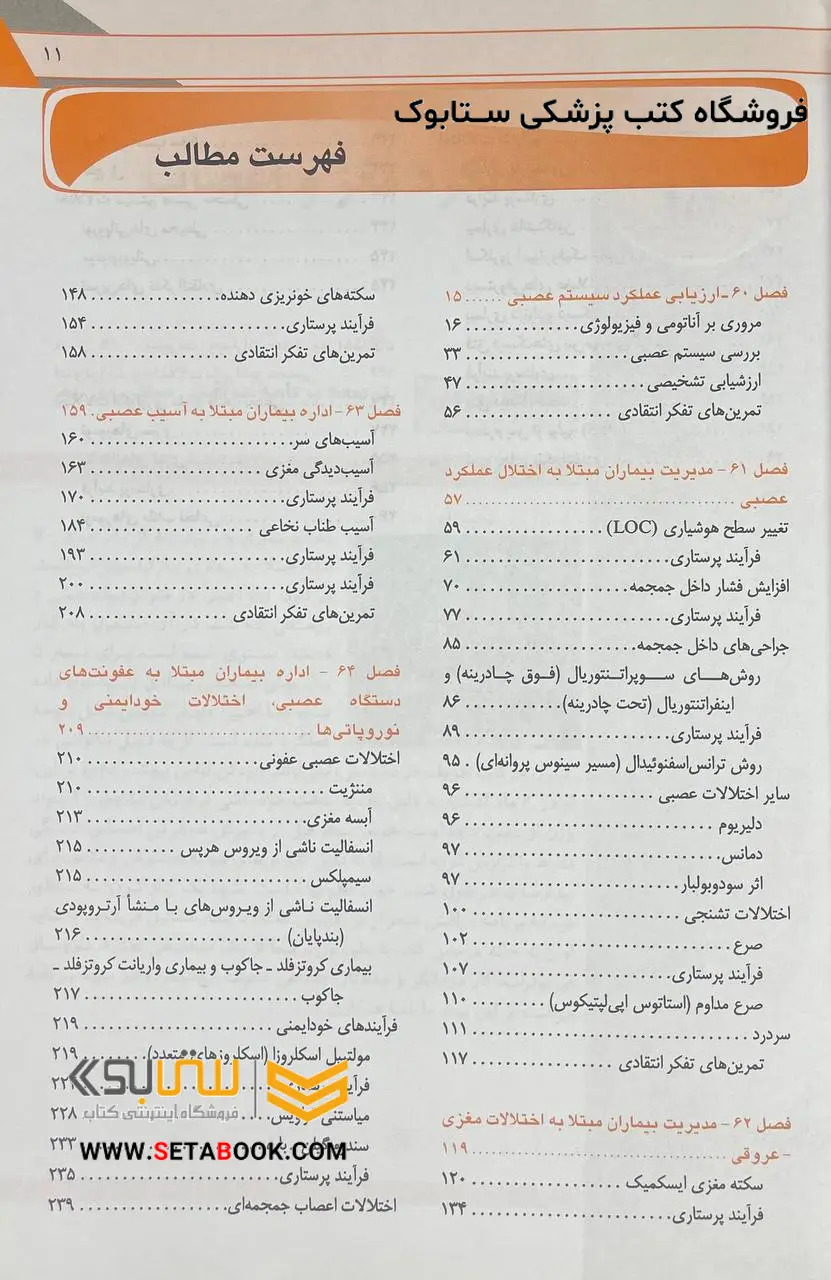 ۱۱
فروشگاه کتب پزشکی ستابوک
فهرست مطالب
فصل ۶۰ـ ارزیابی عملکرد سیستم عصبی ...... ۱۵
مروری بر آناتومی و فیزیولوژی.............. ۱۶
بررسی سیستم عصبی.................... ۳۳
ارزشیابی تشخیصی...................... ۴۷
تمرین‌های تفکر انتقادی .................. ۵۶
فصل ۶۱ - مدیریت بیماران مبتلا به اختلال عملکرد
عصبی .................................. ۵۷
تغییر سطح هوشیاری (LOC)................ ۵۹
فرآیند پرستاری.......................... ۶۱
افزایش فشار داخل جمجمه................. ۷۰
فرآیند پرستاری.......................... ۷۷
جراحی‌های داخل جمجمه................... ۸۵
روش‌هـــای ســوپراتـنتوریال (فـوق چـادرینه) و
اینفراتنتوریال (تحت چادرینه)............ ۸۶
فرآیند پرستاری.......................... ۸۹
روش ترانس‌اسفنوئیدال (مسیر سینوس پروانه‌ای) . ۹۵
سایر اختلالات عصبی ...................... ۹۶
دلیریوم ............................... ۹۶
دمانس................................. ۹۷
اثر سودوبولبار......................... ۹۷
اختلالات تشنجی ......................... ۱۰۰
صرع ................................. ۱۰۲
فرآیند پرستاری......................... ۱۰۷
صرع مداوم (استاتوس اپی‌لپتیکوس) ......... ۱۱۰
سردرد ................................. ۱۱۱
تمرین‌های تفکر انتقادی .................. ۱۱۷
فصل ۶۲ - مدیریت بیماران مبتلا به اختلالات مغزی
- عروقی ............................... ۱۱۹
سکته مغزی ایسکمیک ..................... ۱۲۰
فرآیند پرستاری......................... ۱۳۴
سکته‌های خونریزی دهنده................. ۱۴۸
فرآیند پرستاری......................... ۱۵۴
تمرین‌های تفکر انتقادی .................. ۱۵۸
فصل ۶۳ - اداره بیماران مبتلا به آسیب عصبی. ۱۵۹
آسیب‌های سر........................... ۱۶۰
آسیب‌دیدگی مغزی ...................... ۱۶۳
فرآیند پرستاری......................... ۱۷۰
آسیب طناب نخاعی ...................... ۱۸۴
فرآیند پرستاری......................... ۱۹۳
فرآیند پرستاری......................... ۲۰۰
تمرین‌های تفکر انتقادی .................. ۲۰۸
فصل ۶۴ - اداره بیماران مبتلا به عفونت‌های
دستگاه عصبی، اختلالات خودایمنی و
نوروپاتی‌ها ............................ ۲۰۹
اختلالات عصبی عفونی.................... ۲۱۰
مننژیت ............................... ۲۱۰
آبسه مغزی............................. ۲۱۳
انسفالیت ناشی از ویروس هرپس ........... ۲۱۵
سیمپلکس............................. ۲۱۵
انسفالیت ناشی از ویـروس‌های بـا مـنشأ آرتـروپودی
(بندپایان) ........................... ۲۱۶
بیماری کروتزفلد ـ جاکوب و بیماری واریانت کروتزفلد ـ
جاکوب ............................... ۲۱۷
فرآیندهای خودایمنی ..................... ۲۱۹
مولتیپل اسکلروزا (اسکلروزهای متعدد)....... ۲۱۹
میاستنی گراویس.... ۲۲۸
۲۳۳
فرآیند پرستاری......................... ۲۳۵
اختلالات اعصاب جمجمه‌ای................. ۲۳۹
ستابوک
فروشگاه اینترنتی کتاب
WWW.SETABOOK.COM